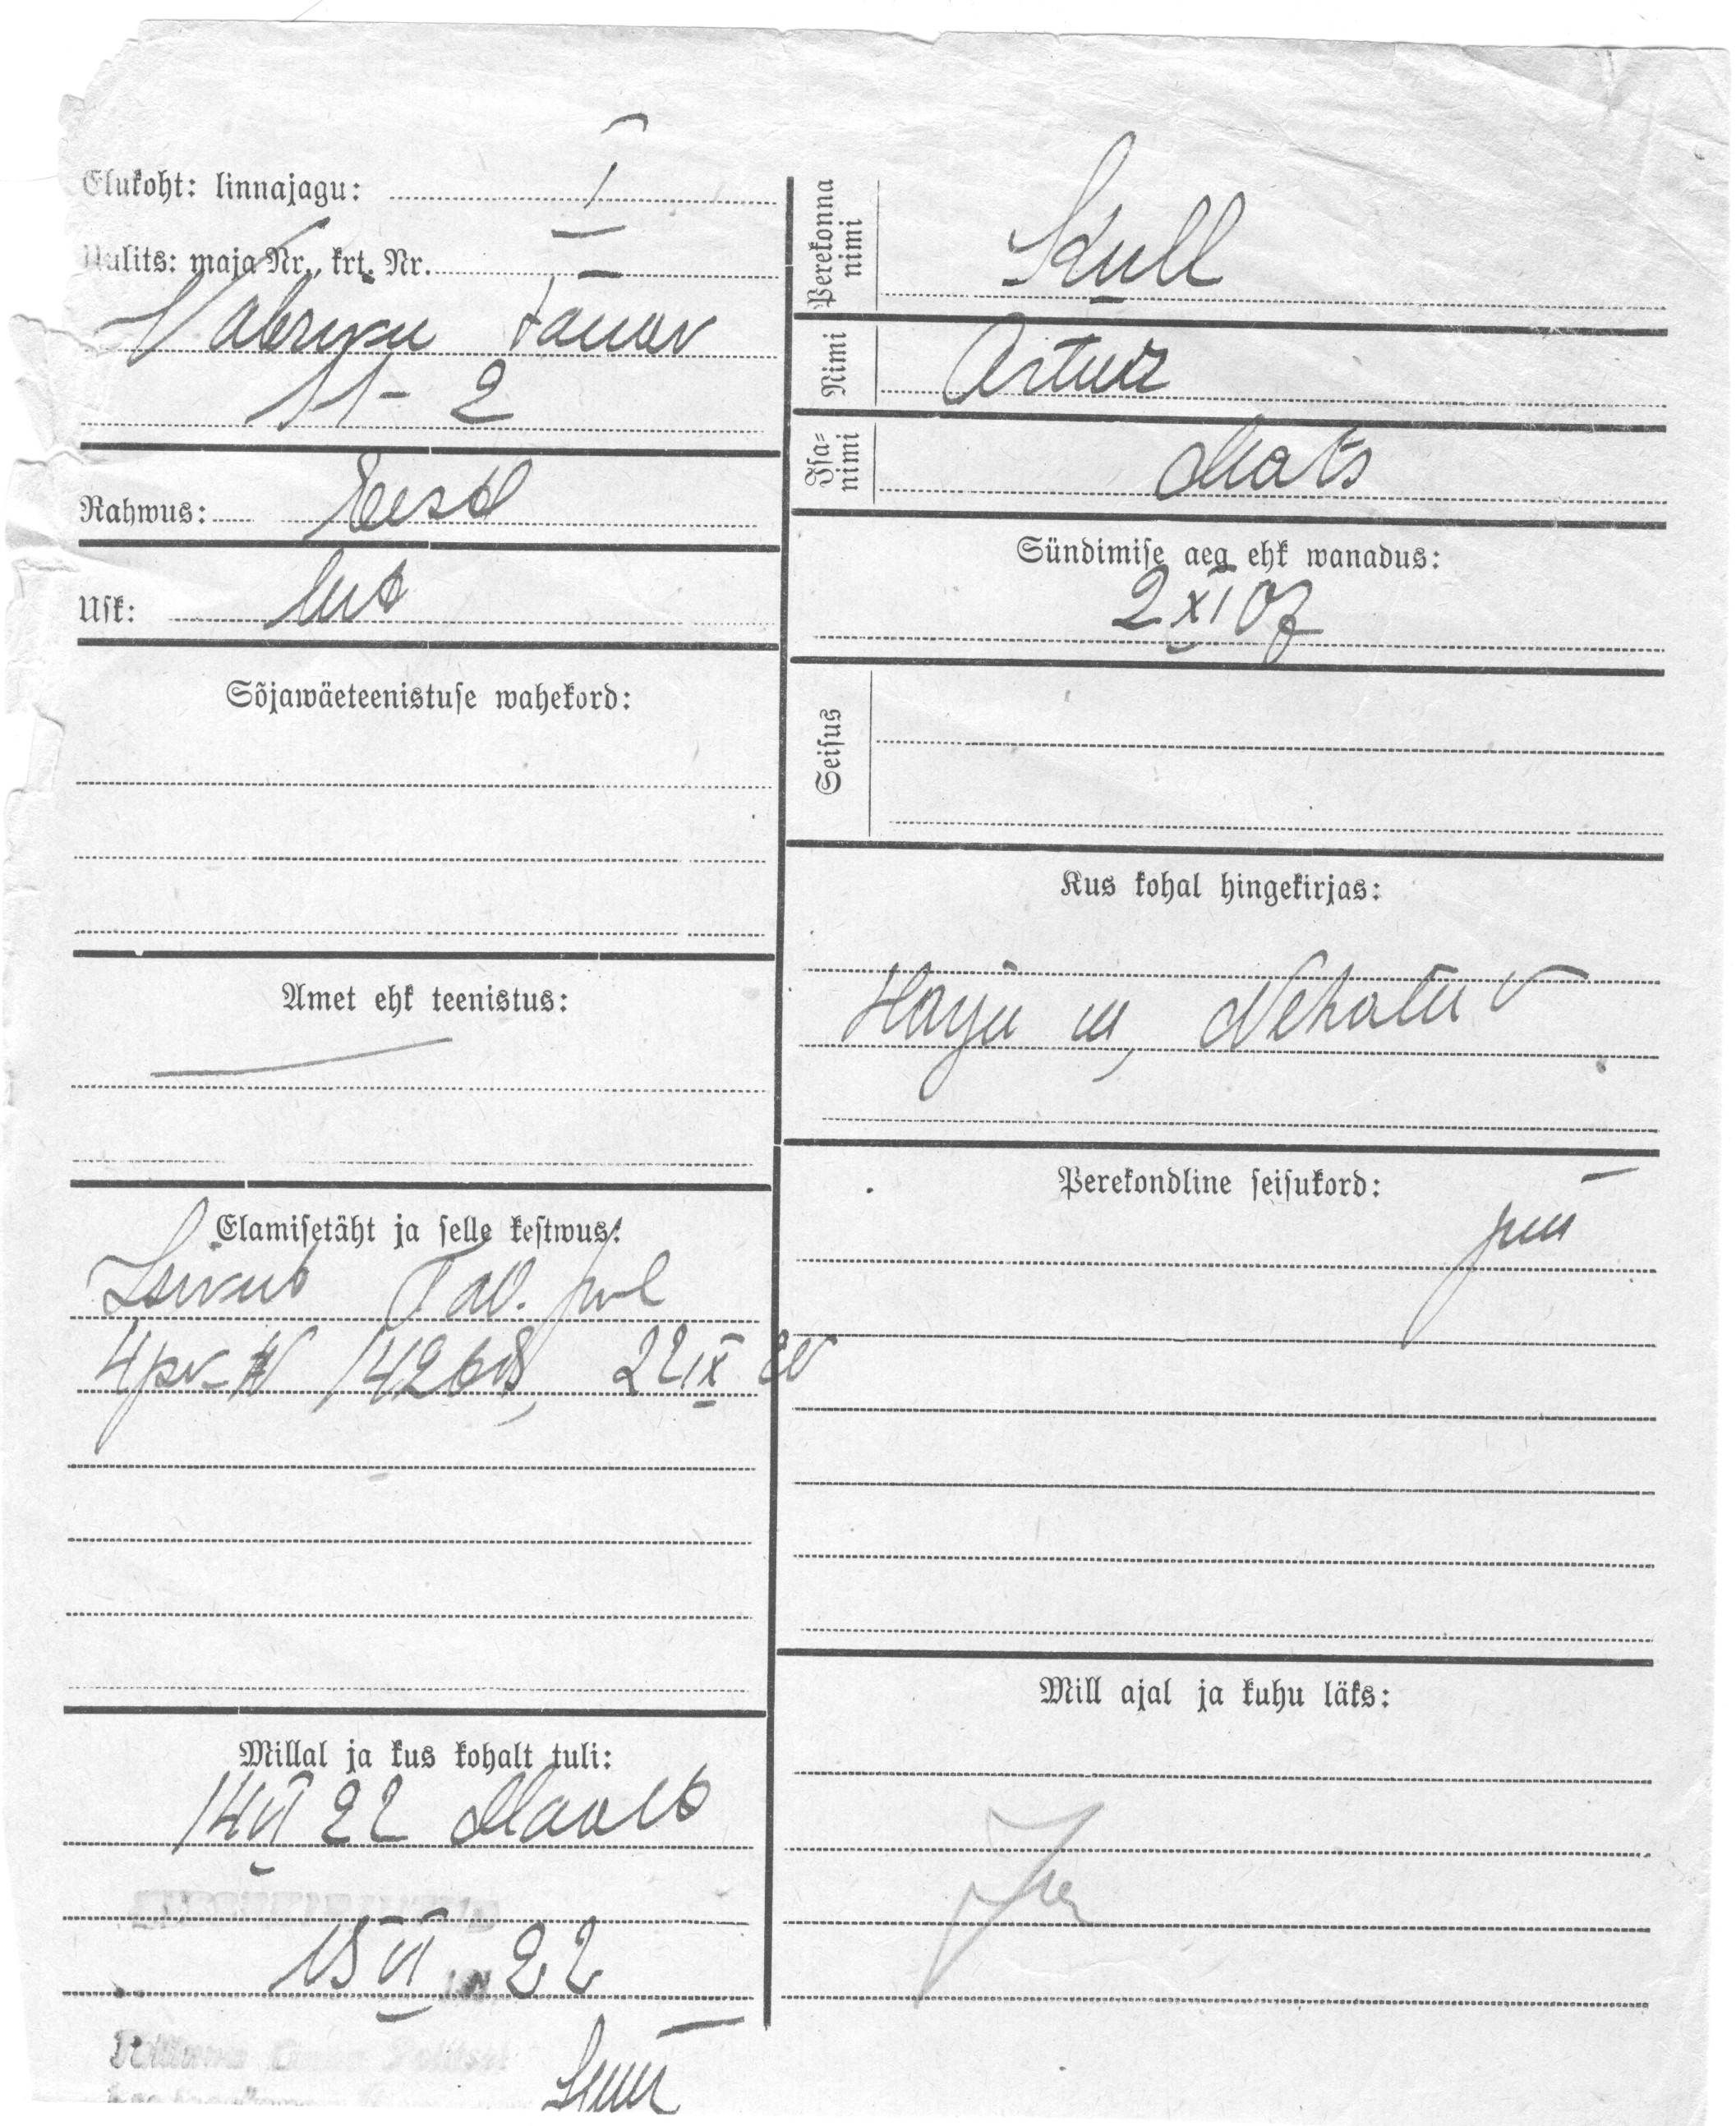 Elukoht: linnajagu: I
Uulits: maja Nr., krt. Nr.
Vabriku tänav
11-2
Rahwus: Eesti
Usk: lut
Sõjawäeteenistuse wahekord:
Amet ehk teenistus:
Elamisetäht ja selle kestwus:
Isikut Tal. pol
4 pr N 14268, 22 IX 20
Millal ja kus kohalt tuli:
14 VI 22 Maalt
15 VI 22
Perekonna
nimi
Kull
Nimi
Artur
Isa-
nimi
Mats
Sündimise aeg ehk wanadus:
2 XI 07
Seisus
Kus kohal hingekirjas:
Harju m, Nehatu v
Perekondline seisukord:
Mill ajal ja kuhu läks: